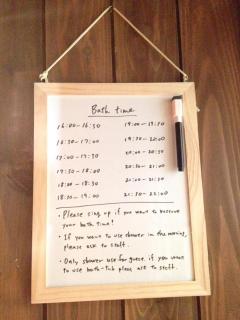 Bath time
16:00 - 16:30
19:00 - 19:30
16:30 - 17:00
19:30 - 20:00
17:00 - 17:30
20:00 - 20:30
17:30 - 18:00
20:30 - 21:00
18:00 - 18:30
21:00 - 21:30
18:30 - 19:00
21:30 - 22:00
・Please sing up if you want to reserve
your bath time!
・If you want to use shower in the morning,
please ask to staff.
・Only shower use for guest if you want
to use bath-tub please ask to staff.